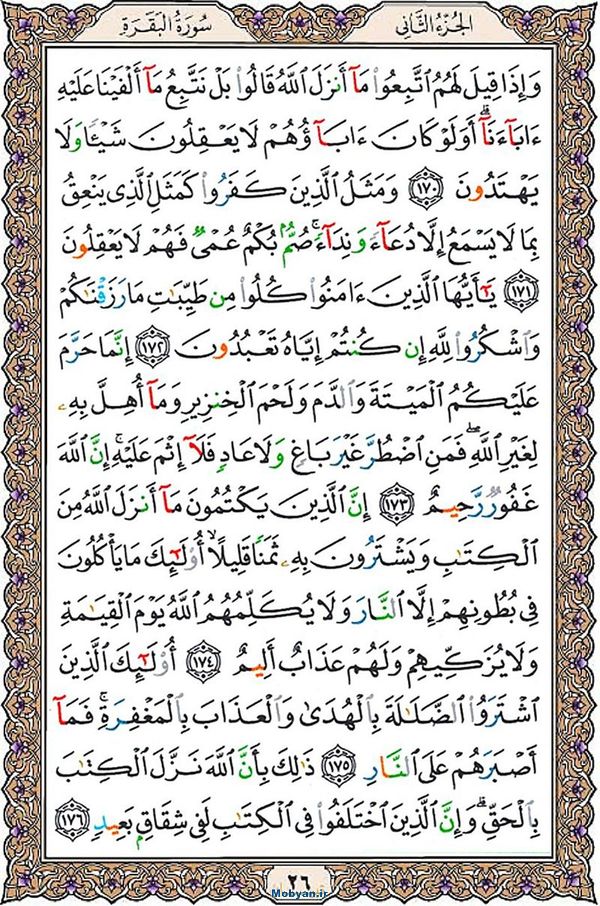 الجُزْءُ الثَّانِي سُورَةُ البَقَرَةِ
وَإِذَا قِيلَ لَهُمُ ٱتَّبِعُوا۟ مَآ أَنزَلَ ٱللَّهُ قَالُوا۟ بَلْ نَتَّبِعُ مَآ أَلْفَيْنَا عَلَيْهِ
ءَابَآءَنَآ ۗ أَوَلَوْ كَانَ ءَابَآؤُهُمْ لَا يَعْقِلُونَ شَيْـًٔا وَلَا
يَهْتَدُونَ ١٧٠ وَمَثَلُ ٱلَّذِينَ كَفَرُوا۟ كَمَثَلِ ٱلَّذِى يَنْعِقُ
بِمَا لَا يَسْمَعُ إِلَّا دُعَآءً وَنِدَآءً ۚ صُمٌّۢ بُكْمٌ عُمْىٌ فَهُمْ لَا يَعْقِلُونَ
١٧١ يَـٰٓأَيُّهَا ٱلَّذِينَ ءَامَنُوا۟ كُلُوا۟ مِن طَيِّبَـٰتِ مَا رَزَقْنَـٰكُمْ
وَٱشْكُرُوا۟ لِلَّهِ إِن كُنتُمْ إِيَّاهُ تَعْبُدُونَ ١٧٢ إِنَّمَا حَرَّمَ
عَلَيْكُمُ ٱلْمَيْتَةَ وَٱلدَّمَ وَلَحْمَ ٱلْخِنزِيرِ وَمَآ أُهِلَّ بِهِۦ
لِغَيْرِ ٱللَّهِ ۖ فَمَنِ ٱضْطُرَّ غَيْرَ بَاغٍ وَلَا عَادٍ فَلَآ إِثْمَ عَلَيْهِ ۚ إِنَّ ٱللَّهَ
غَفُورٌ رَّحِيمٌ ١٧٣ إِنَّ ٱلَّذِينَ يَكْتُمُونَ مَآ أَنزَلَ ٱللَّهُ مِنَ
ٱلْكِتَـٰبِ وَيَشْتَرُونَ بِهِۦ ثَمَنًا قَلِيلًا ۙ أُو۟لَـٰٓئِكَ مَا يَأْكُلُونَ
فِى بُطُونِهِمْ إِلَّا ٱلنَّارَ وَلَا يُكَلِّمُهُمُ ٱللَّهُ يَوْمَ ٱلْقِيَـٰمَةِ
وَلَا يُزَكِّيهِمْ وَلَهُمْ عَذَابٌ أَلِيمٌ ١٧٤ أُو۟لَـٰٓئِكَ ٱلَّذِينَ
ٱشْتَرَوُا۟ ٱلضَّلَـٰلَةَ بِٱلْهُدَىٰ وَٱلْعَذَابَ بِٱلْمَغْفِرَةِ ۚ فَمَآ
أَصْبَرَهُمْ عَلَى ٱلنَّارِ ١٧٥ ذَٰلِكَ بِأَنَّ ٱللَّهَ نَزَّلَ ٱلْكِتَـٰبَ
بِٱلْحَقِّ ۗ وَإِنَّ ٱلَّذِينَ ٱخْتَلَفُوا۟ فِى ٱلْكِتَـٰبِ لَفِى شِقَاقٍۭ بَعِيدٍ ١٧٦
٢٦
Mobyan.ir